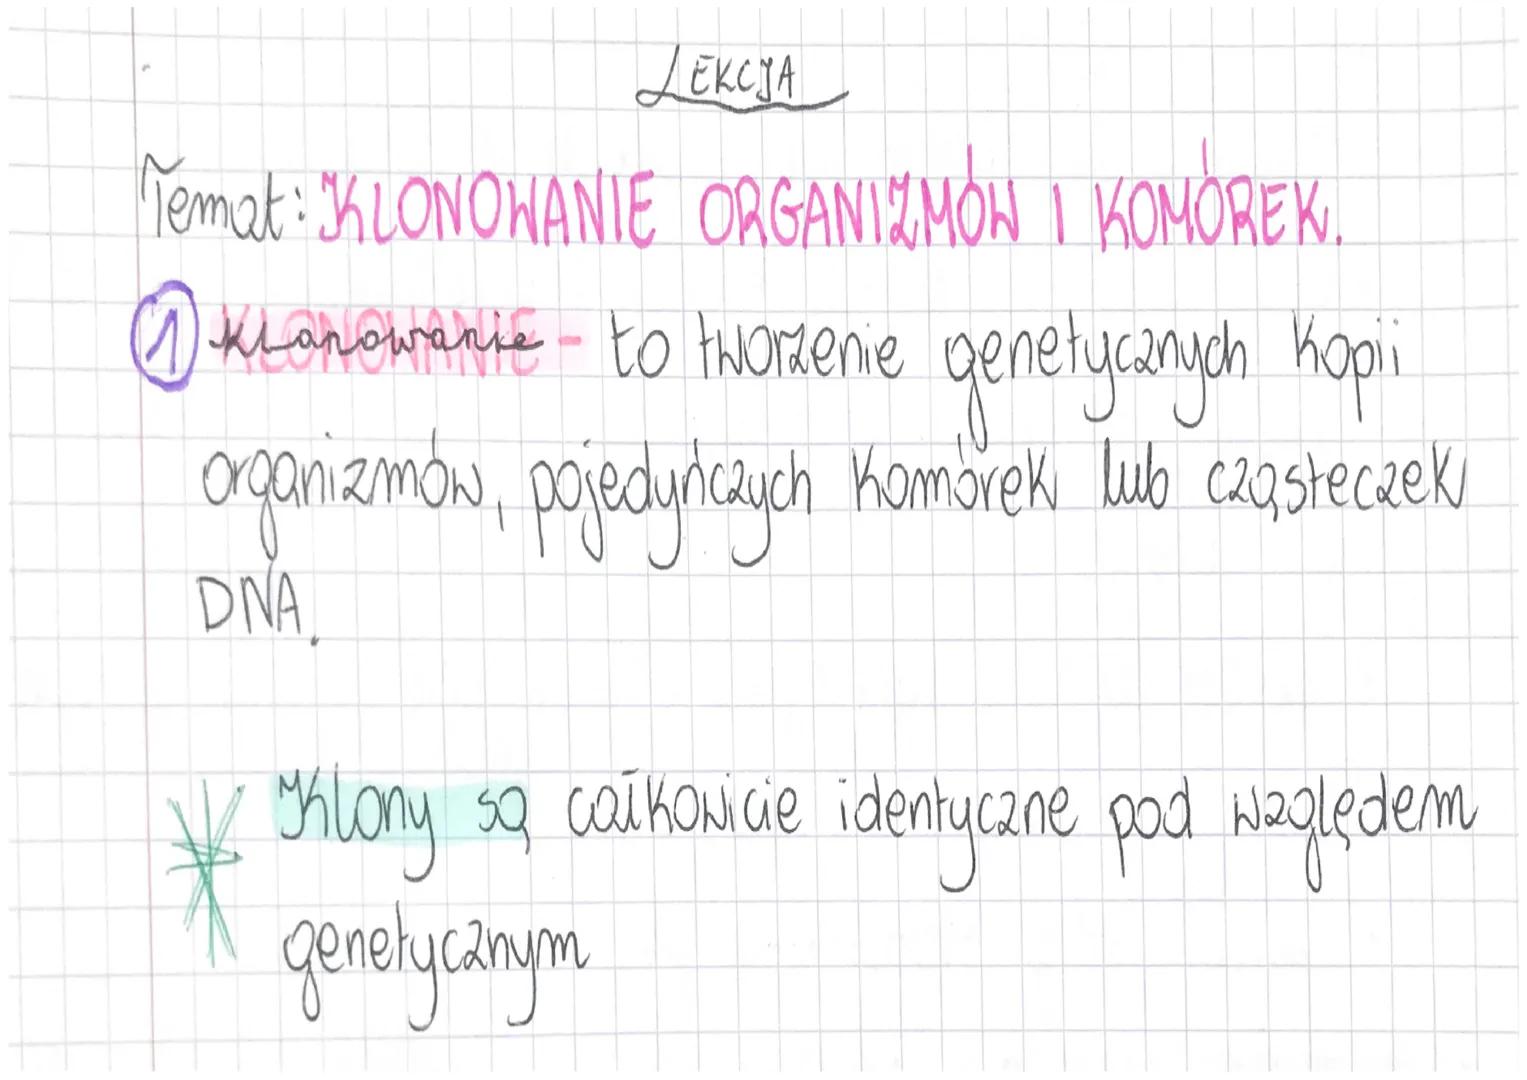 LEKCJA
Temat: KLONOWANIE ORGANIZMÓW I KOMÓREK.
1 Klonowanie - to tworzenie genetycznych kopii
organizmów, pojedyńczych komórek lub cząsteczek
DNA.
Klony są całkowicie identyczne pod względem
genetycznym